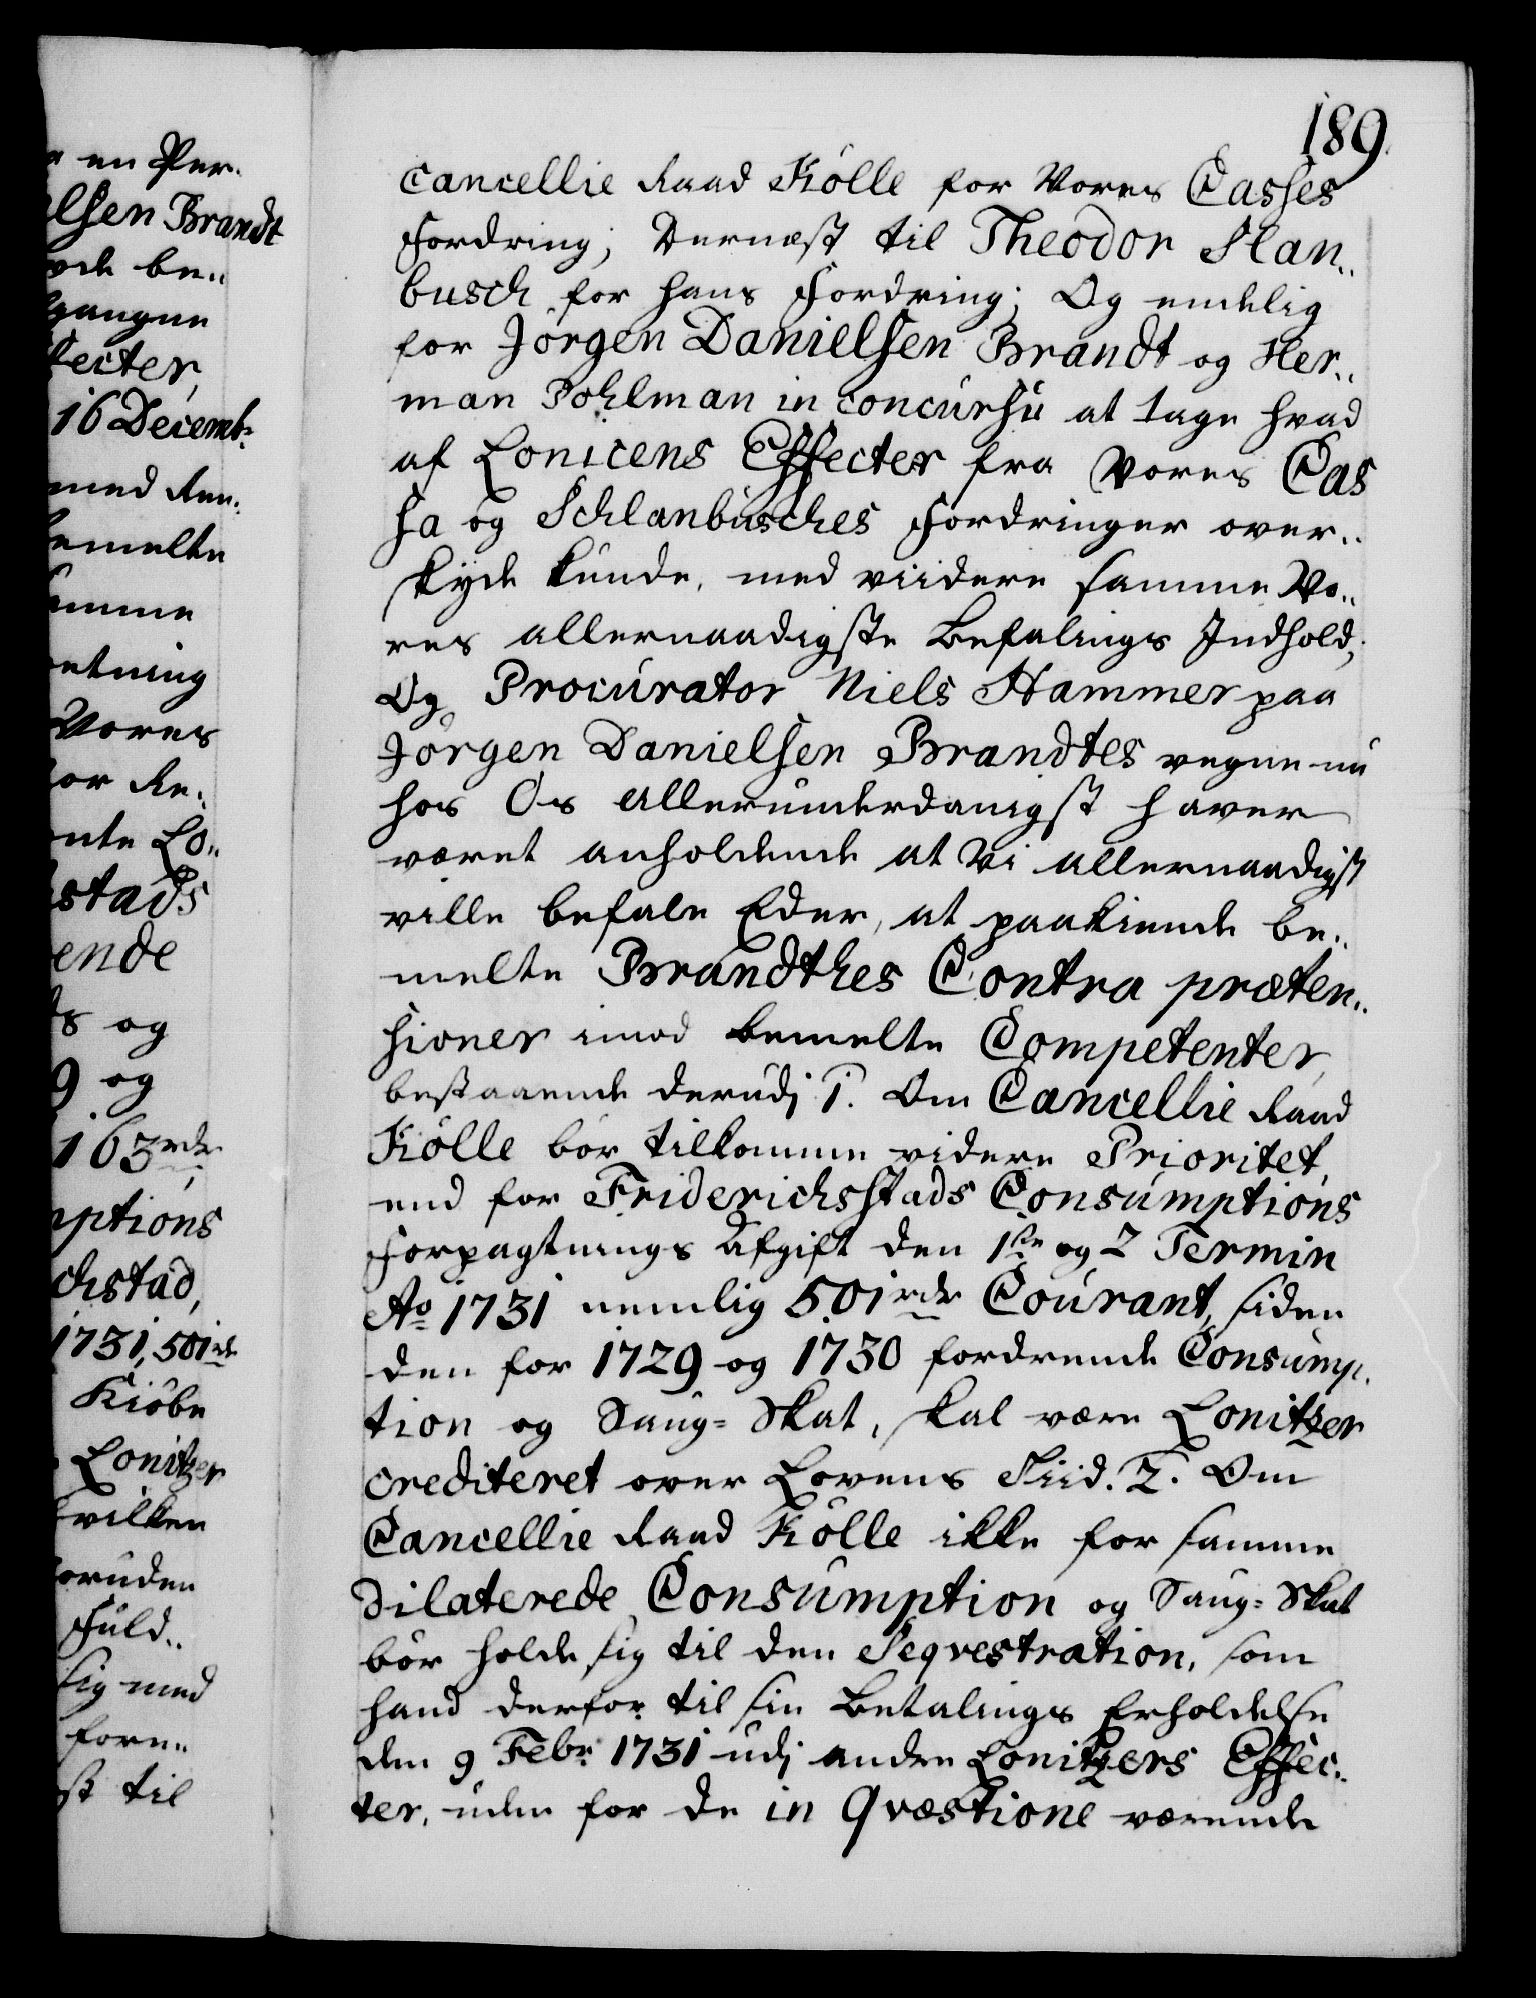 189.
Cancellie Raad Kölle for Vores Casses
Fordring; Dernæst til Theodor Slan„
busch for hans Fordring; Og endelig
for Jörgen Danielsen Brandt og Her„
man Pohlman in concursu at tage hvad
af Lonicens Effecter fra Vores Cas
sa og Schlanbusches Fordringer over„
skyde kunde, med viidere samme Vo„
res allernaadigste Befalings Indhold;
Og Procurator Niels Hammer paa
Jörgen Danielsen Brandtes vegne nu
hos Os allerunderdanigst haver
været anholdende at Vi allernaadigst
ville befale Eder, at paakiende be„
melte Brandthes Contra præten„
sioner imod bemelte Competenter,
bestaaende derudj 1. Om Cancellie Raad
Kölle bör tilkomme videre Prioritet,
end for Friderichsstads Consumptions
Forpagtnings Afgift den 1ste og 2 Termin
Ao 1731 nemlig 501 rdr Courant, siden
den for 1729 og 1730 fordrende Consump„
tion og Saug=Skat, skal være Lonitzer
crediteret over Lovens Tiid. 2. Om
Cancellie Raad Kölle ikke for samme
dilaterede Consumption og Saug=Skat
bör holde sig til den Seqvestration, som
hand derfor til sin Betalings Erholdelse
den 9 Febr 1731 udj andre Lonitzers Effec„
ter, uden for de in Qvæstione værende
en Per„
elsen Brandt
be„
gangne
fecter,
16 Decembr
med Ren„
bemelte
samme
retning
Vores
for Re„
nte Lo„
stads
ende
og
9 og
163 rdr
mptions
chstad,
1731, 501 rdr
Kiöbe
Lonitzer
hvilken
foruden
Fuld„
sig med
fore„
st til